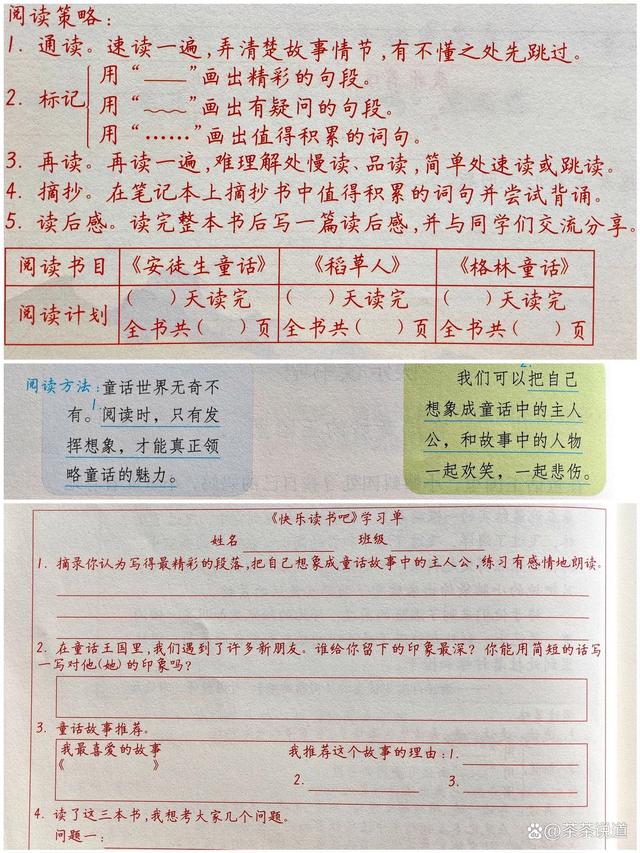 阅读策略：
1. 通读。速读一遍，弄清楚故事情节，有不懂之处先跳过。
2. 标记
用“——”画出精彩的句段。
用“﹏﹏”画出有疑问的句段。
用“……”画出值得积累的词句。
3. 再读。再读一遍，难理解处慢读、品读，简单处速读或跳读。
4. 摘抄。在笔记本上摘抄书中值得积累的词句并尝试背诵。
5. 读后感。读完整本书后写一篇读后感，并与同学们交流分享。
阅读书目 《安徒生童话》 《稻草人》 《格林童话》
阅读计划 (  )天读完 (  )天读完 (  )天读完
全书共(  )页 全书共(  )页 全书共(  )页
阅读方法：童话世界无奇不
有。1.阅读时，只有发
挥想象，才能真正领
略童话的魅力。
2.
我们可以把自己
想象成童话中的主人
公，和故事中的人物
一起欢笑，一起悲伤。
《快乐读书吧》学习单
姓名________ 班级
1. 摘录你认为写得最精彩的段落，把自己想象成童话故事中的主人公，练习有感情地朗读。
2. 在童话王国里，我们遇到了许多新朋友。谁给你留下的印象最深？你能用简短的话写
一写对他(她)的印象吗？
3. 童话故事推荐。
我最喜爱的故事 我推荐这个故事的理由：1.________
《        》 2.________ 3.________
4. 读了这三本书，我想考大家几个问题。
问题一：________
@茶茶说道